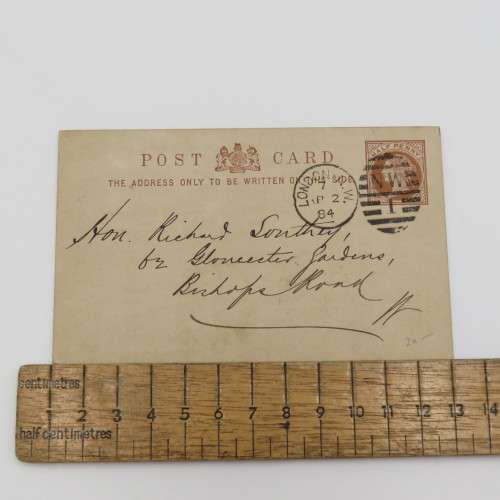 POST CARD
THE ADDRESS ONLY TO BE WRITTEN ON THIS SIDE
HALF PENNY
LONDON N.W.
7
AP 2
84
N.W
1
Hon. Richard Southey,
62 Gloucester Gardens,
Bishops Road
W
20-
centimetres
1 2 3 4 5 6 7 8 9 10 11 12 13 14
half centimetres